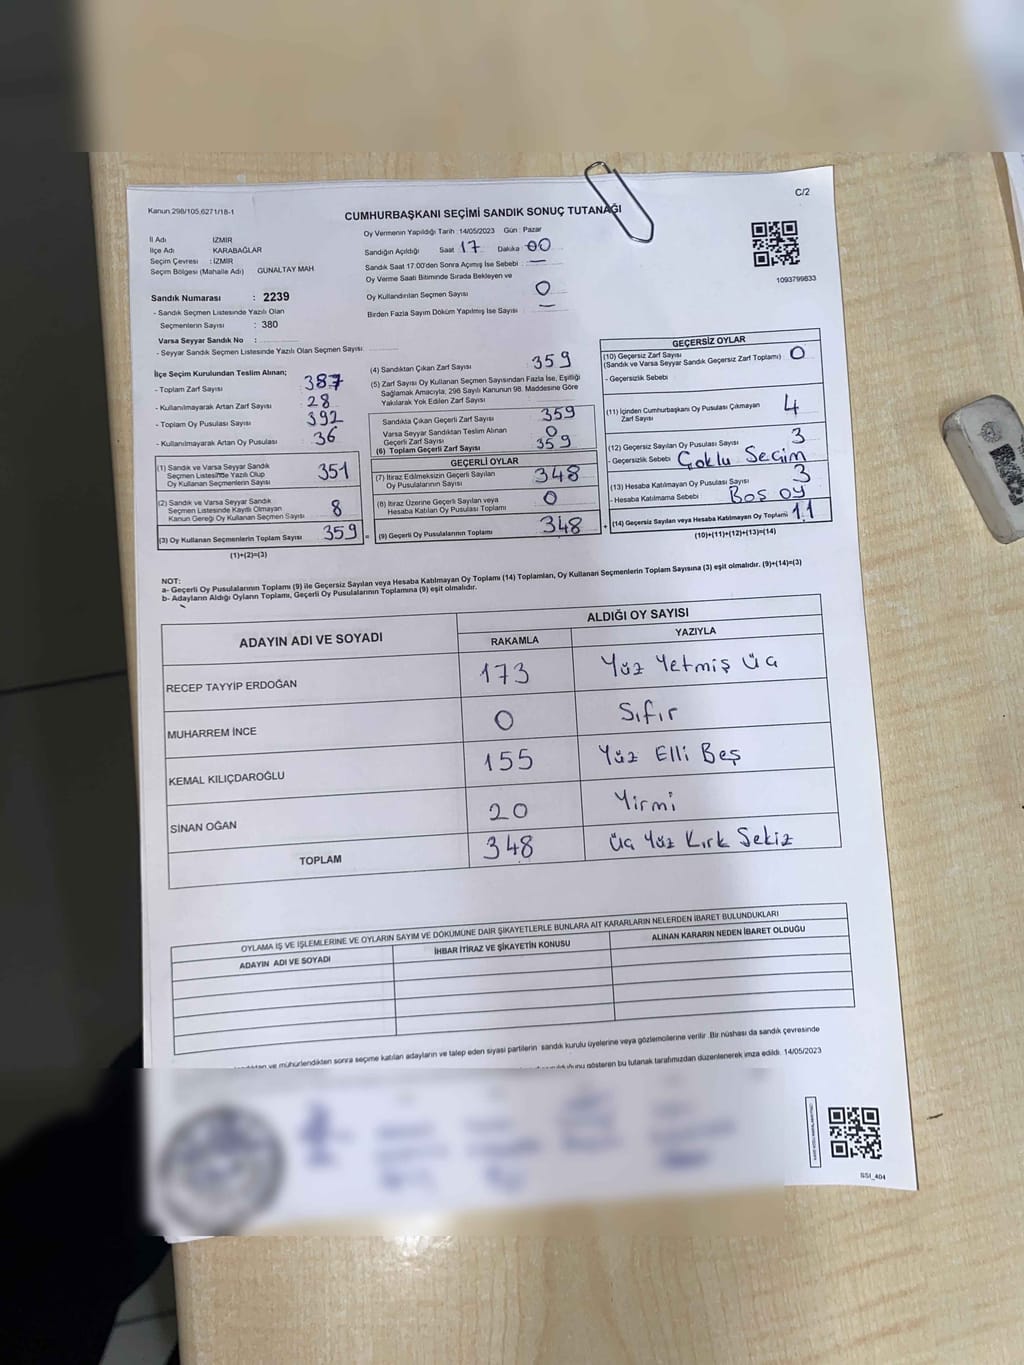 Kanun.298/105,6271/18-1
C/2
CUMHURBAŞKANI SEÇİMİ SANDIK SONUÇ TUTANAĞI
İl Adı İZMİR
İlçe Adı KARABAĞLAR
Seçim Çevresi : İZMİR
Seçim Bölgesi (Mahalle Adı) GÜNALTAY MAH
Sandık Numarası : 2239
- Sandık Seçmen Listesinde Yazılı Olan
Seçmenlerin Sayısı : 380
Varsa Seyyar Sandık No :
- Seyyar Sandık Seçmen Listesinde Yazılı Olan Seçmen Sayısı
Oy Vermenin Yapıldığı Tarih :14/05/2023 Gün : Pazar
Sandığın Açıldığı Saat 17 Dakika 00
Sandık Saat 17:00'den Sonra Açımış İse Sebebi : —
Oy Verme Saati Bitiminde Sırada Bekleyen ve
Oy Kullandırılan Seçmen Sayısı 0
Birden Fazla Sayım Döküm Yapılmış İse Sayısı : —
1093799833
İlçe Seçim Kurulundan Teslim Alınan;
- Toplam Zarf Sayısı 387
- Kullanılmayarak Artan Zarf Sayısı 28
- Toplam Oy Pusulası Sayısı 392
- Kullanılmayarak Artan Oy Pusulası 36
(1) Sandık ve Varsa Seyyar Sandık
Seçmen Listesinde Yazılı Olup
Oy Kullanan Seçmenlerin Sayısı 351
(2) Sandık ve Varsa Seyyar Sandık
Seçmen Listesinde Kayıtlı Olmayan
Kanun Gereği Oy Kullanan Seçmen Sayısı 8
(3) Oy Kullanan Seçmenlerin Toplam Sayısı 359
(1)+(2)=(3)
(4) Sandıktan Çıkan Zarf Sayısı 359
(5) Zarf Sayısı Oy Kullanan Seçmen Sayısından Fazla İse, Eşitliği
Sağlamak Amacıyla; 298 Sayılı Kanunun 98. Maddesine Göre
Yakılarak Yok Edilen Zarf Sayısı
Sandıkta Çıkan Geçerli Zarf Sayısı 359
Varsa Seyyar Sandıktan Teslim Alınan
Geçerli Zarf Sayısı 0
(6) Toplam Geçerli Zarf Sayısı 359
GEÇERLİ OYLAR
(7) İtiraz Edilmeksizin Geçerli Sayılan
Oy Pusulalarının Sayısı 348
(8) İtiraz Üzerine Geçerli Sayılan veya
Hesaba Katılan Oy Pusulası Toplamı 0
= (9) Geçerli Oy Pusulalarının Toplamı 348
GEÇERSİZ OYLAR
(10) Geçersiz Zarf Sayısı
(Sandık ve Varsa Seyyar Sandık Geçersiz Zarf Toplamı) 0
- Geçersizlik Sebebi
(11) İçinden Cumhurbaşkanı Oy Pusulası Çıkmayan
Zarf Sayısı 4
(12) Geçersiz Sayılan Oy Pusulası Sayısı 3
- Geçersizlik Sebebi Çoklu Seçim
(13) Hesaba Katılmayan Oy Pusulası Sayısı 3
- Hesaba Katılmama Sebebi Boş oy
+ (14) Geçersiz Sayılan veya Hesaba Katılmayan Oy Toplamı 11
(10)+(11)+(12)+(13)=(14)
NOT:
a- Geçerli Oy Pusulalarının Toplamı (9) ile Geçersiz Sayılan veya Hesaba Katılmayan Oy Toplamı (14) Toplamları, Oy Kullanan Seçmenlerin Toplam Sayısına (3) eşit olmalıdır. (9)+(14)=(3)
b- Adayların Aldığı Oyların Toplamı, Geçerli Oy Pusulalarının Toplamına (9) eşit olmalıdır.
ADAYIN ADI VE SOYADI ALDIĞI OY SAYISI
RAKAMLA YAZIYLA
RECEP TAYYİP ERDOĞAN 173 Yüz Yetmiş Üç
MUHARREM İNCE 0 Sıfır
KEMAL KILIÇDAROĞLU 155 Yüz Elli Beş
SİNAN OĞAN 20 Yirmi
TOPLAM 348 Üç Yüz Kırk Sekiz
OYLAMA İŞ VE İŞLEMLERİNE VE OYLARIN SAYIM VE DÖKÜMÜNE DAİR ŞİKAYETLERLE BUNLARA AİT KARARLARIN NELERDEN İBARET BULUNDUKLARI
ADAYIN ADI VE SOYADI İHBAR İTİRAZ VE ŞİKAYETİN KONUSU ALINAN KARARIN NEDEN İBARET OLDUĞU
ve mühürlendikten sonra seçime katılan adayların ve talep eden siyasi partilerin sandık kurulu üyelerine veya gözlemcilerine verilir .Bir nüshası da sandık çevresinde
gösteren bu tutanak tarafımızdan düzenlenerek imza edildi. 14/05/2023
SSİ_404